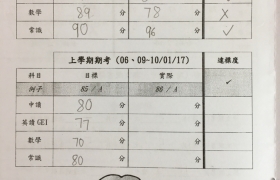 數學 89 分 78 分 X
常識 90 分 96 分 ✓
上學期期考 (06、09-10/01/17) 達標度
科目 目標 實際
例子 85 / A 86 / A ✓
中讀 80 分 分
英讀(GE) 77 分 分
數學 70 分 分
常識 80 分 分